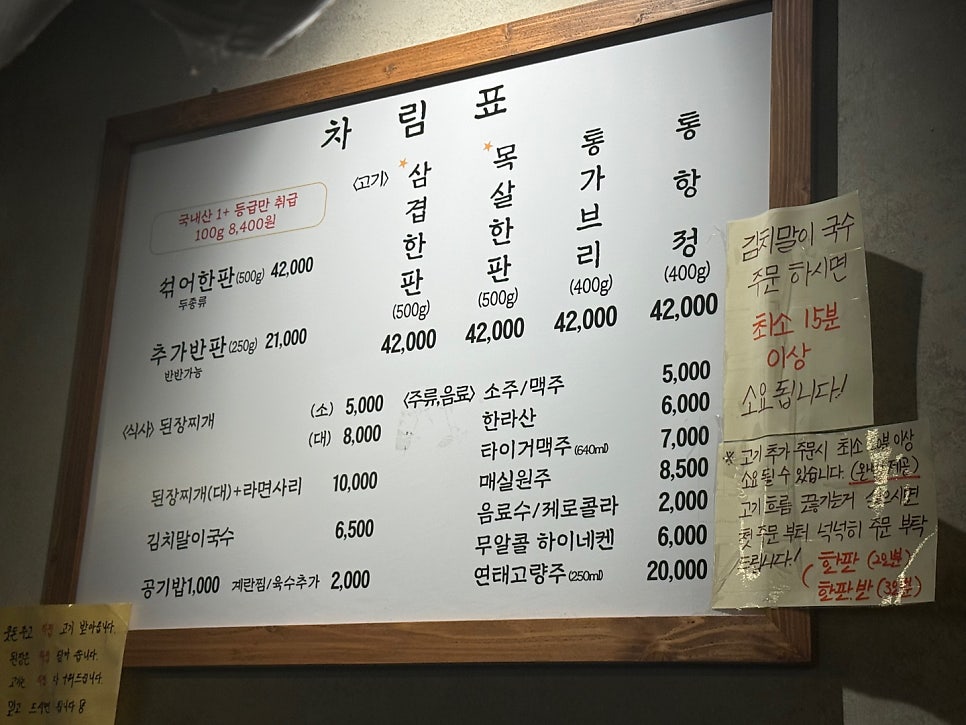 차림표
국내산 1+ 등급만 취급
100g 8,400원
섞어한판(500g) 42,000
두종류
추가반판(250g) 21,000
반반가능
〈고기〉
삼겹한판(500g) 42,000
목살한판(500g) 42,000
통가브리(400g) 42,000
통항정(400g) 42,000
〈식사〉 된장찌개 (소) 5,000
(대) 8,000
된장찌개(대)+라면사리 10,000
김치말이국수 6,500
공기밥1,000 계란찜/육수추가 2,000
〈주류,음료〉 소주/맥주 5,000
한라산 6,000
타이거맥주(640ml) 7,000
매실원주 8,500
음료수/제로콜라 2,000
무알콜 하이네켄 6,000
연태고량주(250ml) 20,000
김치말이 국수
주문 하시면
최소 15분
이상
소요 됩니다!
※ 고기 추가 주문시 최소 이상
소요 될 수 있습니다.
고기 흐름 끊기는게 싫으시면
첫 주문 부터 넉넉히 주문 부탁
드립니다!
한판 (2인분)
한판.반 (3인분)
고기
된장은